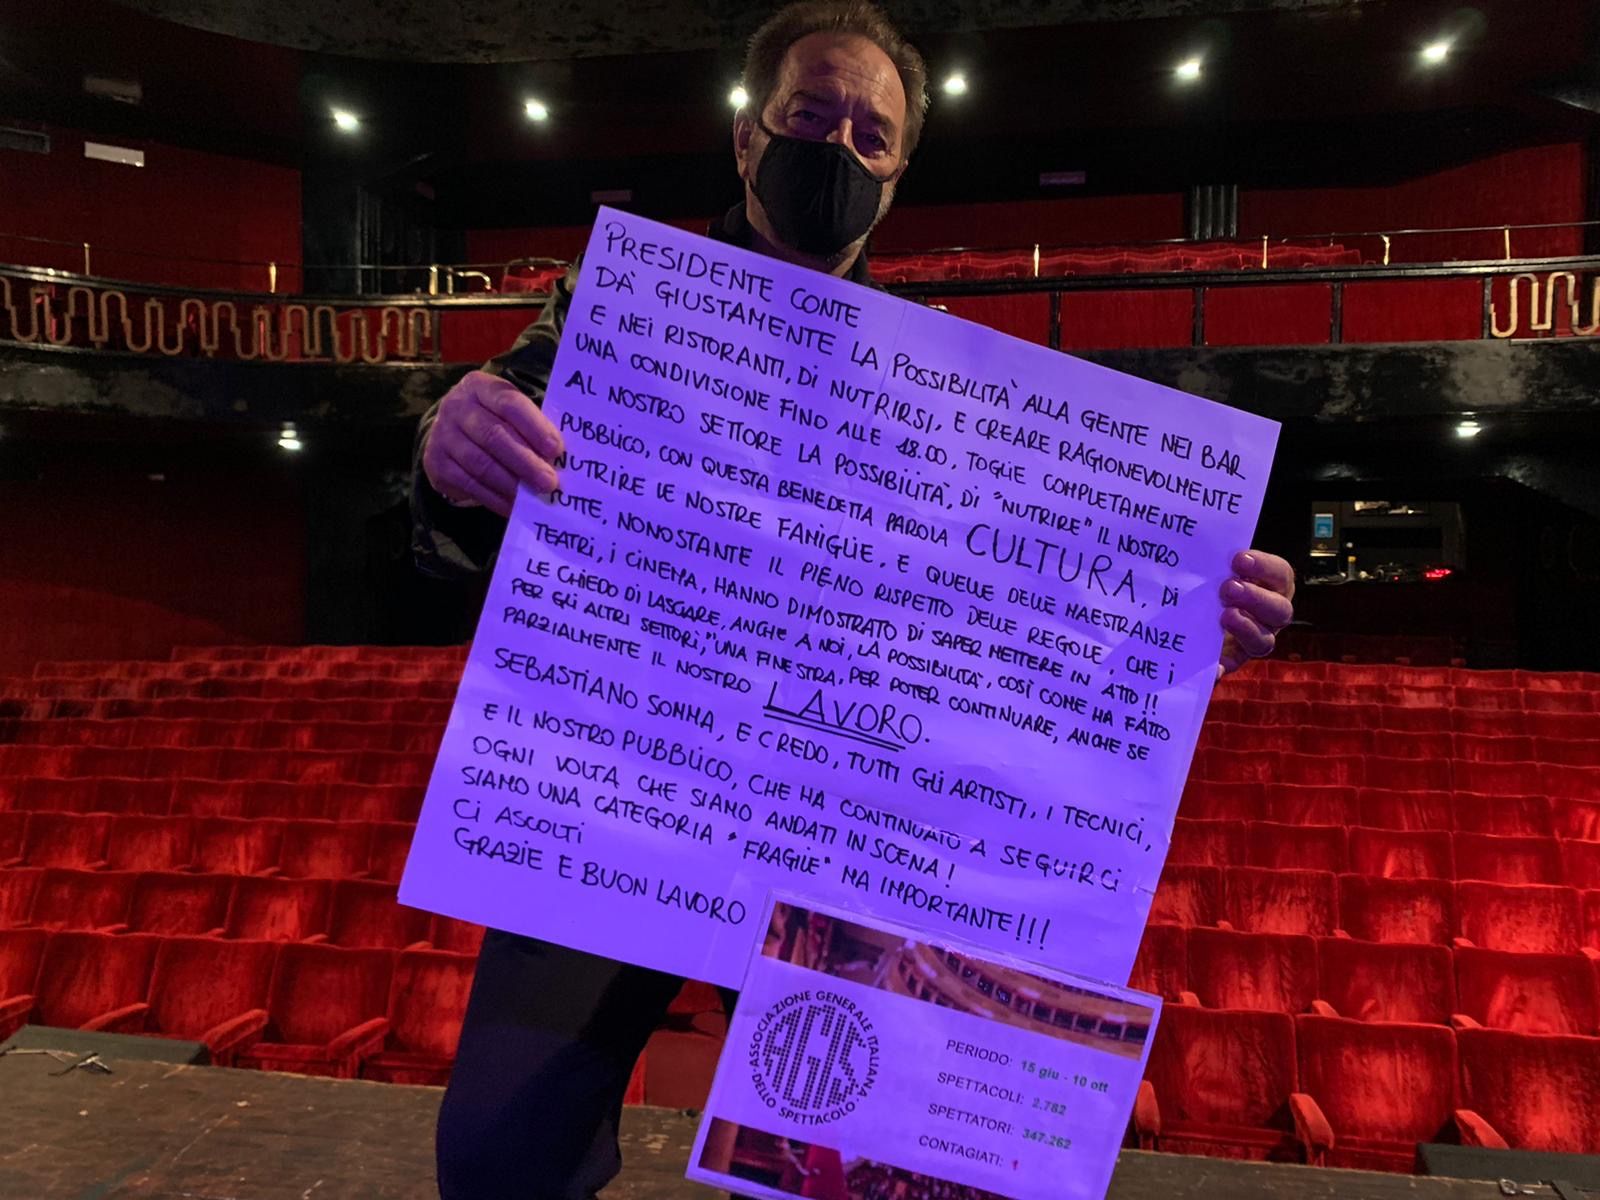 PRESIDENTE CONTE
DÀ GIUSTAMENTE LA POSSIBILITÀ ALLA GENTE NEI BAR
E NEI RISTORANTI, DI NUTRIRSI, E CREARE RAGIONEVOLMENTE
UNA CONDIVISIONE FINO ALLE 18.00, TOGLIE COMPLETAMENTE
AL NOSTRO SETTORE LA POSSIBILITÀ, DI "NUTRIRE" IL NOSTRO
PUBBLICO, CON QUESTA BENEDETTA PAROLA CULTURA, DI
NUTRIRE LE NOSTRE FAMIGLIE, E QUELLE DELLE MAESTRANZE
TUTTE, NONOSTANTE IL PIENO RISPETTO DELLE REGOLE, CHE I
TEATRI, I CINEMA, HANNO DIMOSTRATO DI SAPER METTERE IN ATTO!!
LE CHIEDO DI LASCIARE, ANCHE A NOI, LA POSSIBILITÀ, COSÌ COME HA FATTO
PER GLI ALTRI SETTORI, "UNA FINESTRA, PER POTER CONTINUARE, ANCHE SE
PARZIALMENTE IL NOSTRO LAVORO.
SEBASTIANO SOMMA, E CREDO, TUTTI GLI ARTISTI, I TECNICI,
E IL NOSTRO PUBBLICO, CHE HA CONTINUATO A SEGUIRCI
OGNI VOLTA CHE SIAMO ANDATI IN SCENA!
SIAMO UNA CATEGORIA "FRAGILE" MA IMPORTANTE!!!
CI ASCOLTI
GRAZIE E BUON LAVORO
ASSOCIAZIONE GENERALE ITALIANA
AGIS
DELLO SPETTACOLO
PERIODO: 15 giu - 10 ott
SPETTACOLI: 2.782
SPETTATORI: 347.262
CONTAGIATI: 1